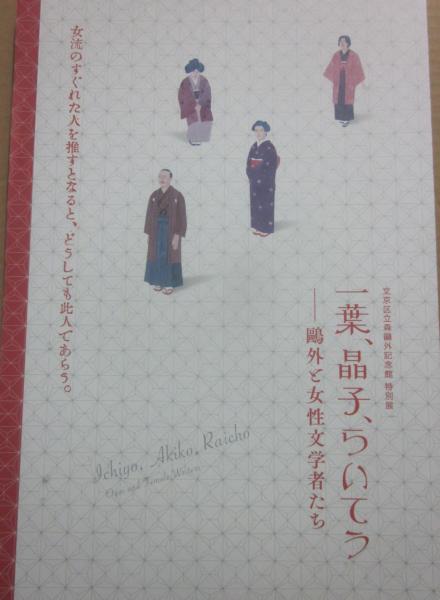 文京区立森鷗外記念館 特別展
一葉、晶子、らいてう
──鷗外と女性文学者たち
女流のすぐれた人を推すとなると、どうしても此人であらう。
Ichiyo, Akiko, Raicho
Ogai and Female Writers